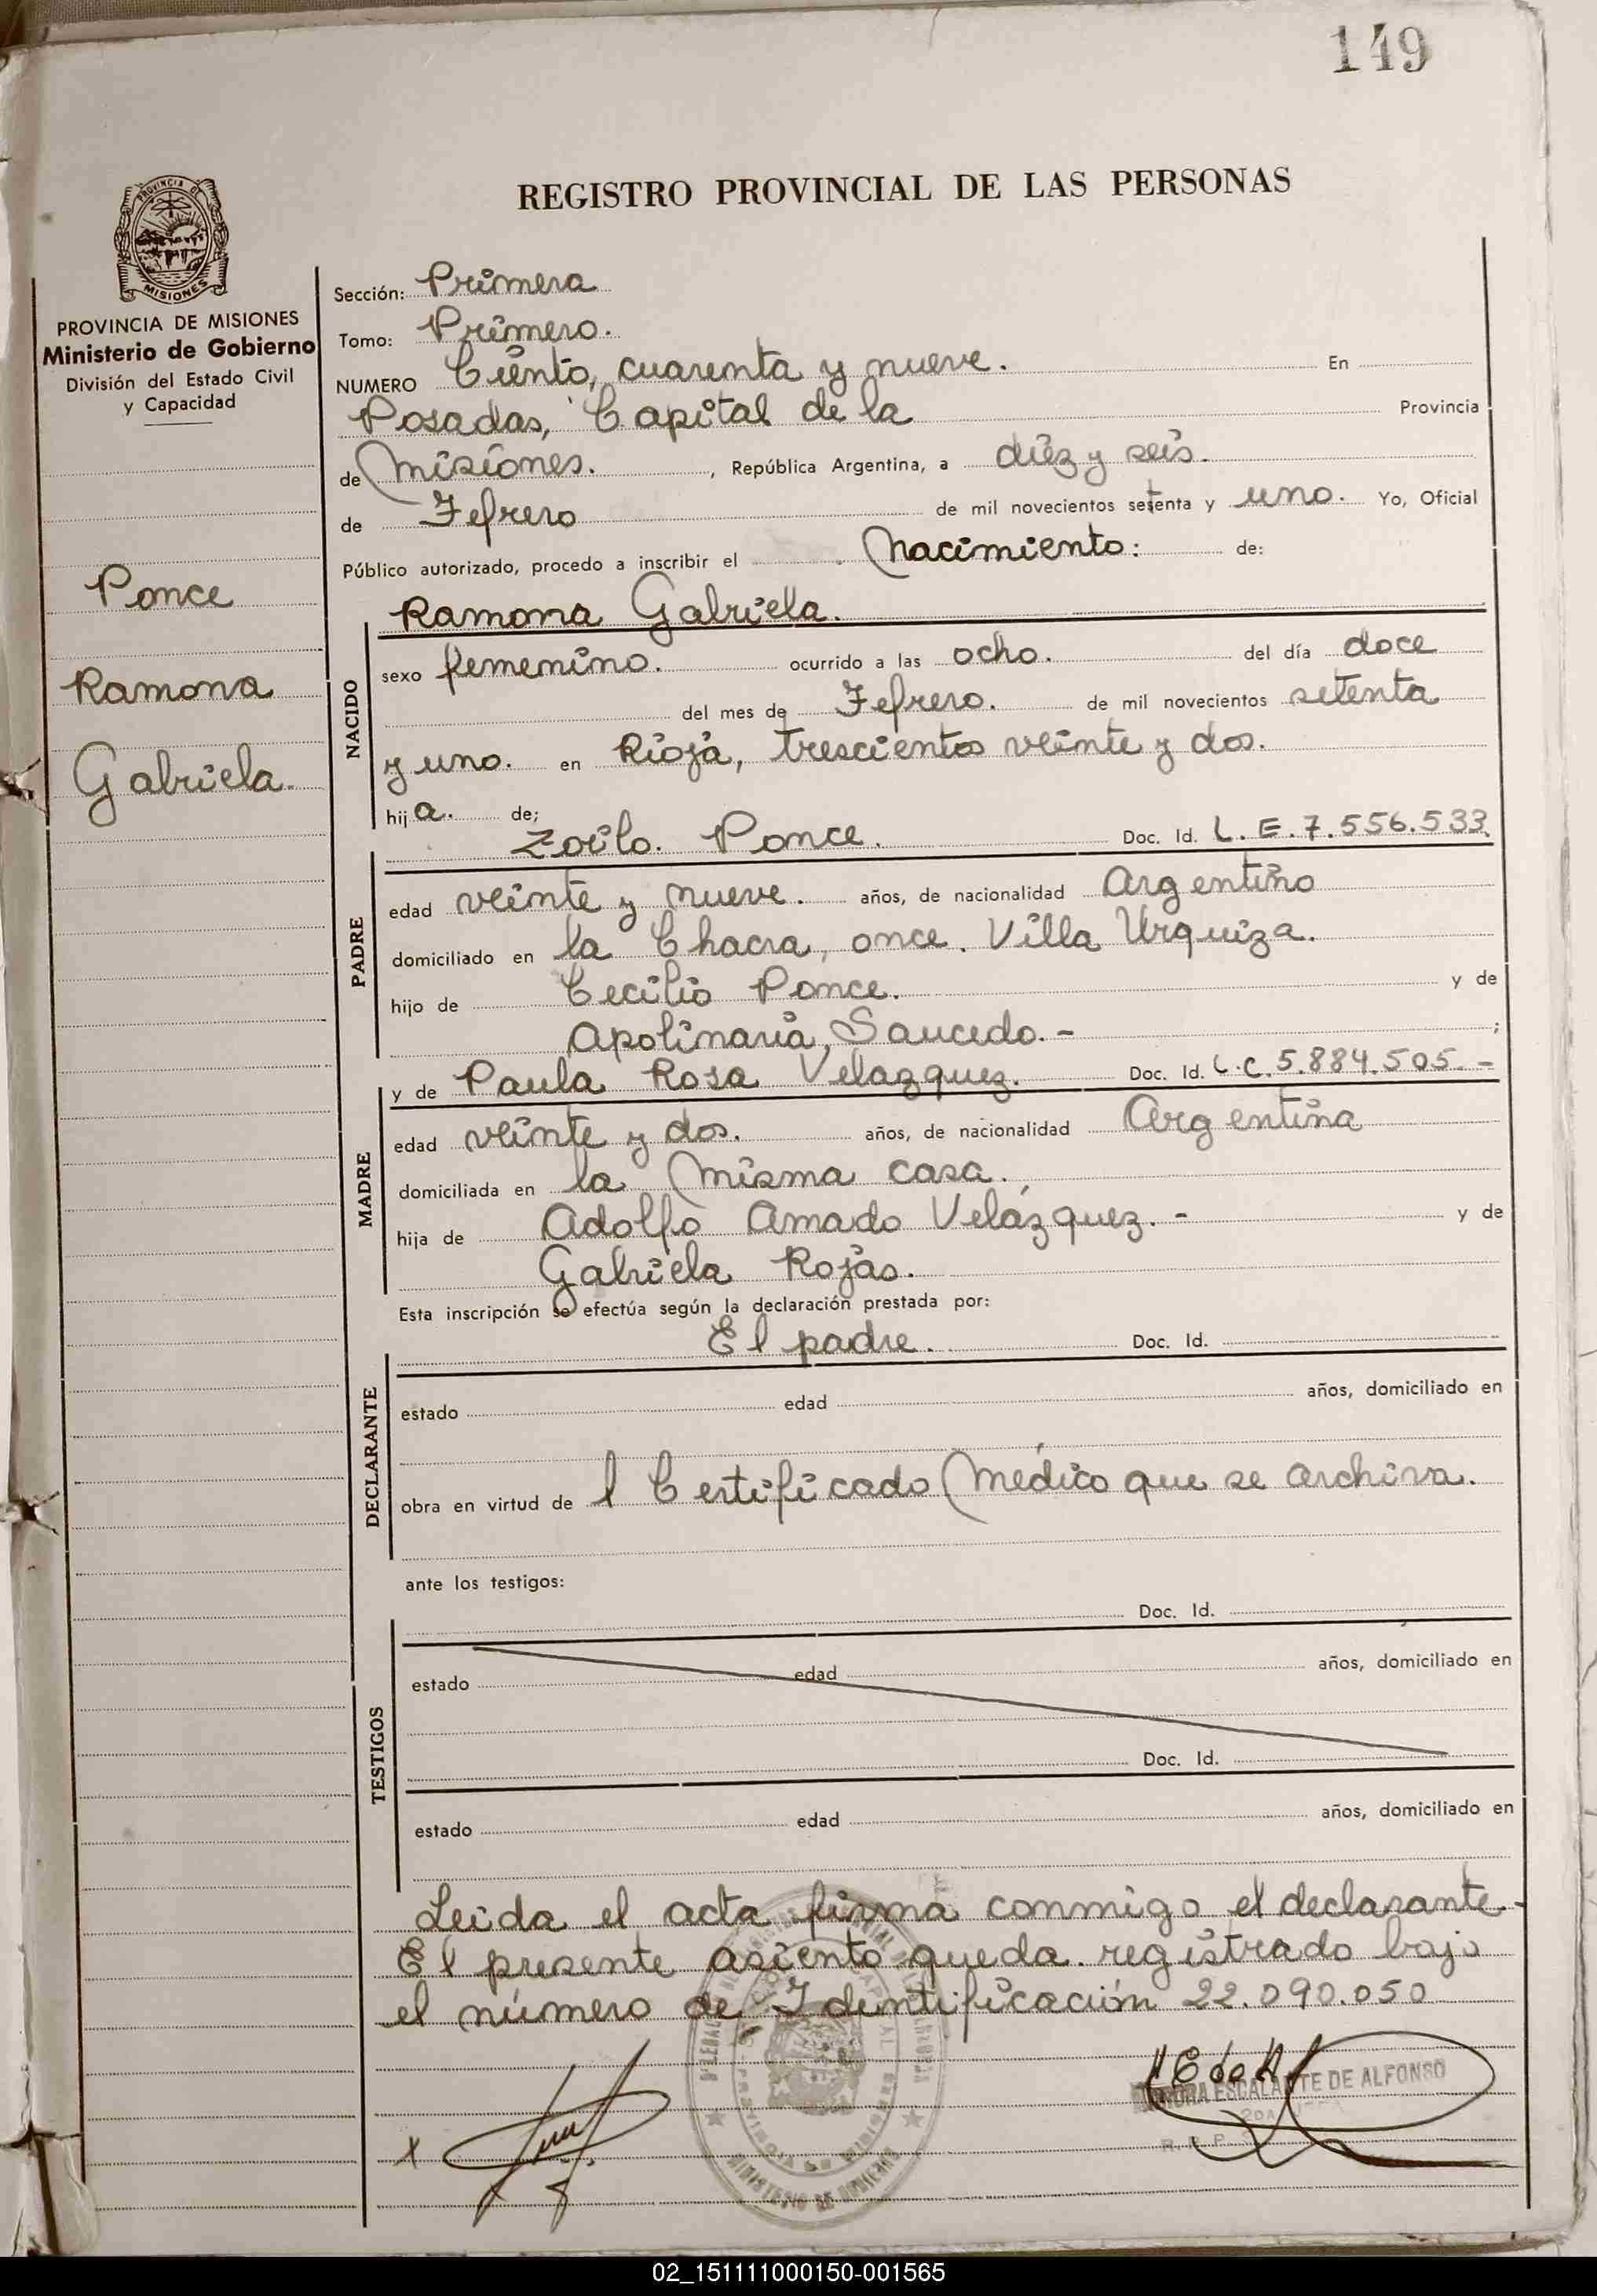 149
REGISTRO PROVINCIAL DE LAS PERSONAS
PROVINCIA DE
MISIONES
PROVINCIA DE MISIONES
Ministerio de Gobierno
División del Estado Civil
y Capacidad
Ponce
Ramona
Gabriela.
Sección: Primera
Tomo: Primero.
NUMERO Ciento, cuarenta y nueve. En
Posadas, Capital de la Provincia
de Misiones. , República Argentina, a diez y seis.
de Febrero de mil novecientos setenta y uno. Yo, Oficial
Público autorizado, procedo a inscribir el Nacimiento: de:
Ramona Gabriela.
NACIDO
sexo femenino. ocurrido a las ocho. del día doce
del mes de Febrero. de mil novecientos setenta
y uno. en Rioja, trescientos veinte y dos.
hija. de;
Zoilo. Ponce. Doc. Id. L.E.7.556.533.
PADRE
edad veinte y nueve. años, de nacionalidad Argentino
domiciliado en la Chacra, once. Villa Urquiza.
hijo de Cecilio Ponce. y de
Apolinaria, Saucedo.- ;
y de Paula Rosa Velazquez. Doc. Id. L.C.5.884.505.-
MADRE
edad veinte y dos. años, de nacionalidad Argentina
domiciliada en la Misma casa.
hija de Adolfo Amado Velázquez.- y de
Gabriela Rojas.
Esta inscripción se efectúa según la declaración prestada por:
El padre. Doc. Id.
DECLARANTE
estado edad años, domiciliado en
obra en virtud de l Certificado Médico que se archiva.
ante los testigos:
Doc. Id.
TESTIGOS
estado edad años, domiciliado en
Doc. Id.
estado edad años, domiciliado en
Leida el acta firma conmigo el declarante.-
El presente asiento queda registrado bajo
el número de Identificación 22.090.050
ESCALANTE DE ALFONSO
MINISTERIO DE GOBIERNO
02_151111000150-001565